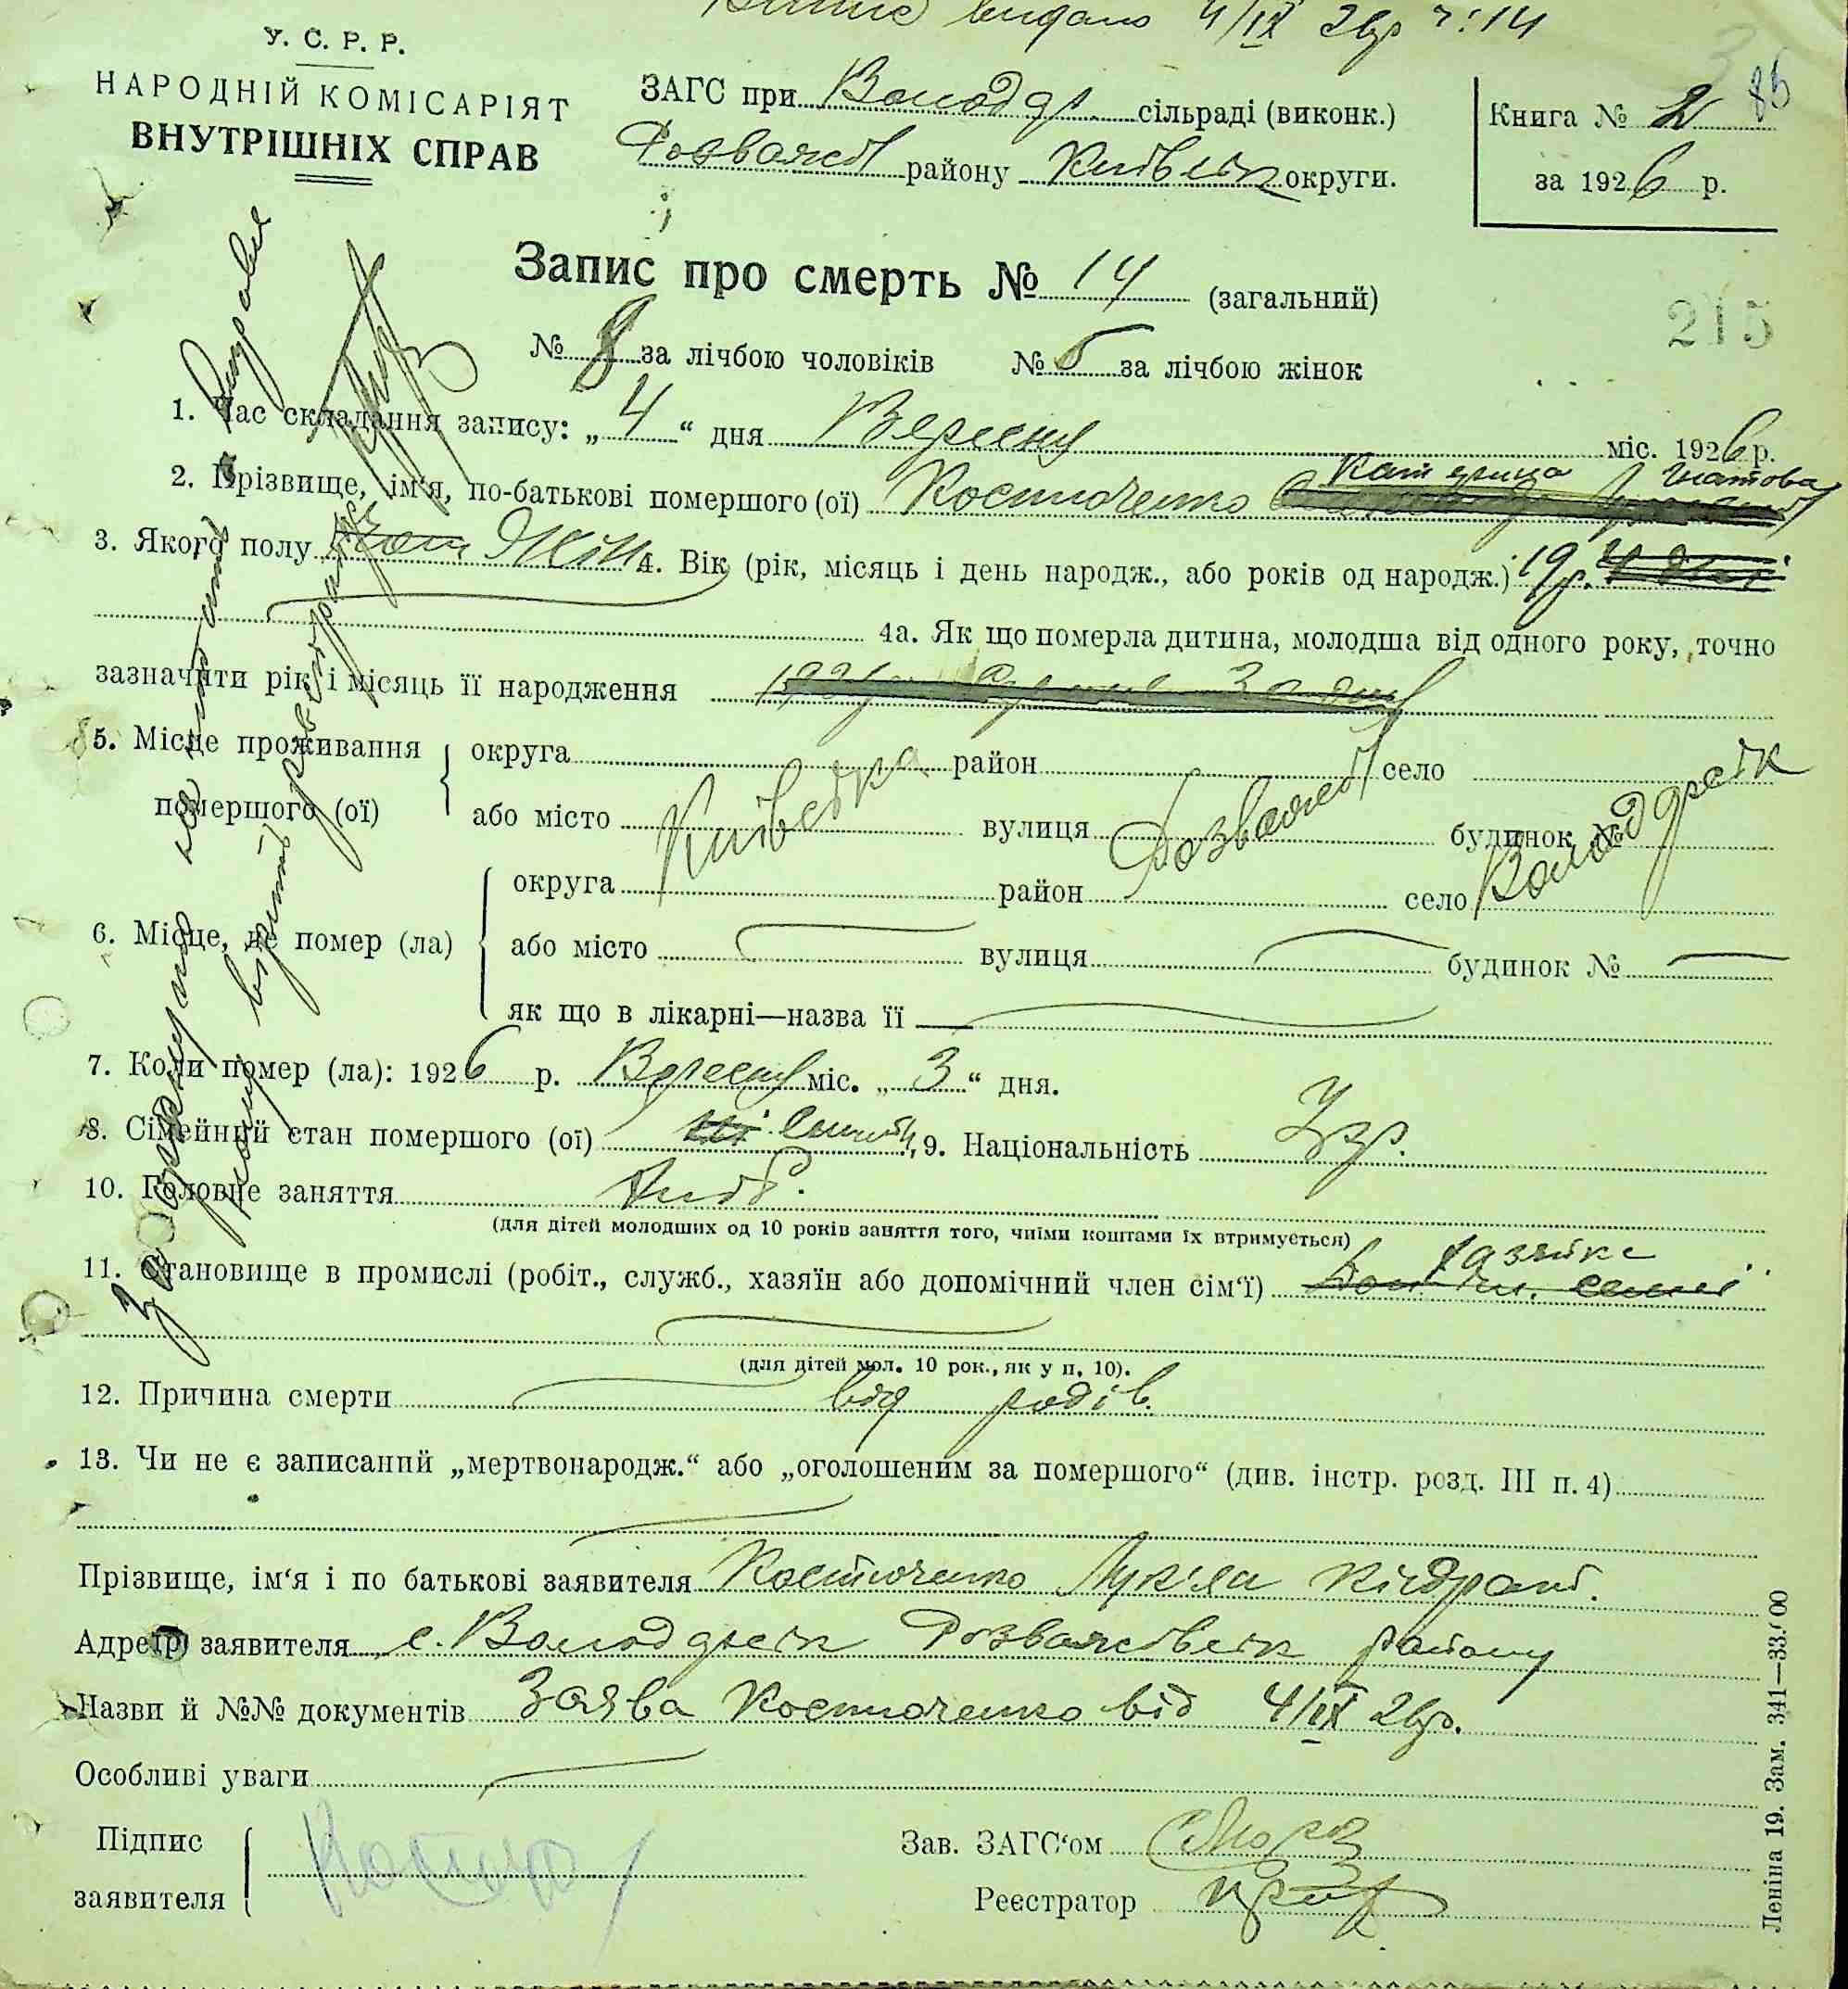 видано 4/IX 26р ч: 14
У. С. Р. Р.
НАРОДНІЙ КОМІСАРІЯТ
ВНУТРІШНІХ СПРАВ
ЗАГС при Володар. сільраді (виконк.)
Розважів району Київськ округи.
Книга № 2 85
за 1926 р.
Запис про смерть № 14 (загальний)
215
№ 8 за лічбою чоловіків № 6 за лічбою жінок
1. Час складання запису: „4“ дня Вересня міс. 1926 р.
2. Прізвище, ім'я, по-батькові помершого (ої) Костюченко Катерина Гнатова
3. Якого полу Жін 4. Вік (рік, місяць і день народж., або років од народж.) 19р.
4а. Як що померла дитина, молодша від одного року, точно
зазначити рік і місяць її народження
5. Місце проживання помершого (ої) округа район село
або місто Київська вулиця Розважів будинок № Володарськ
6. Місце, де помер (ла) округа район село
або місто вулиця будинок №
як що в лікарні—назва її
7. Коли помер (ла): 1926 р. Вересня міс. „3“ дня.
8. Сімейний стан помершого (ої) 9. Національність Укр.
10. Головне заняття Хліб.
(для дітей молодших од 10 років заняття того, чиїми коштами їх втримується)
11. Становище в промислі (робіт., служб., хазяїн або допомічний член сім'ї) Доп. чл. семї хазяйка
(для дітей мол. 10 рок., як у п. 10).
12. Причина смерти від родів.
13. Чи не є записаний „мертвонародж.“ або „оголошеним за помершого“ (див. інстр. розд. III п. 4)
Прізвище, ім'я і по батькові заявителя Костюченко Лук'ян Кіндрат.
Адреса заявителя с. Володарськ Розважівськ району
Назви й №№ документів Заява Костюченко від 4/IX 26р.
Особливі уваги
Підпис заявителя Костюч
Зав. ЗАГС'ом
Реєстратор
Леніна 19. Зам. 341—33.000